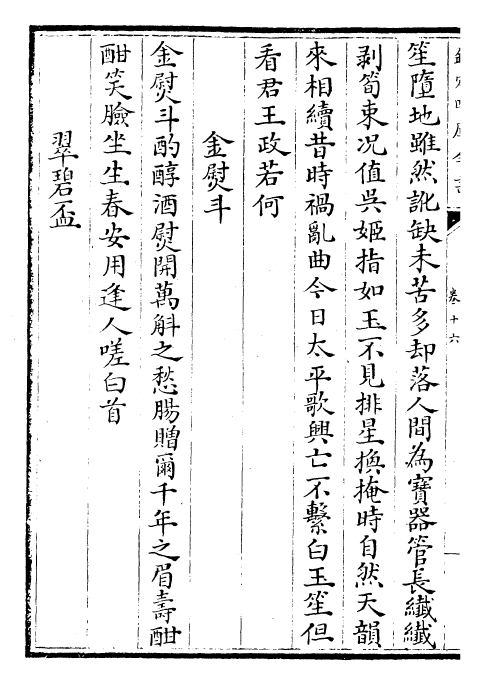 欽定四庫全書
卷十六
笙墮地雖然訛缺未苦多却落人間為寶器管長纎纎
剥筍束况值吳姬指如玉不見排星換掩時自然天韻
來相續昔時禍亂曲今日太平歌興亡不繫白玉笙但
看君王政若何
金熨斗
金熨斗酌醇酒熨開萬斛之愁腸贈爾千年之眉壽酣
酣笑臉坐生春安用逢人嗟白首
翠碧盃